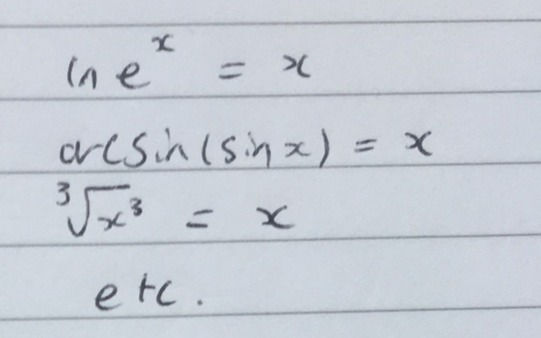 ln eˣ = x
arcsin(sin x) = x
∛x³ = x
etc.